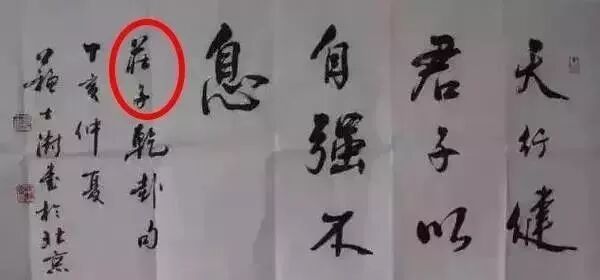 天行健
君子以
自强不
息
莊子乾卦句
丁亥仲夏
苏士澍书於北京